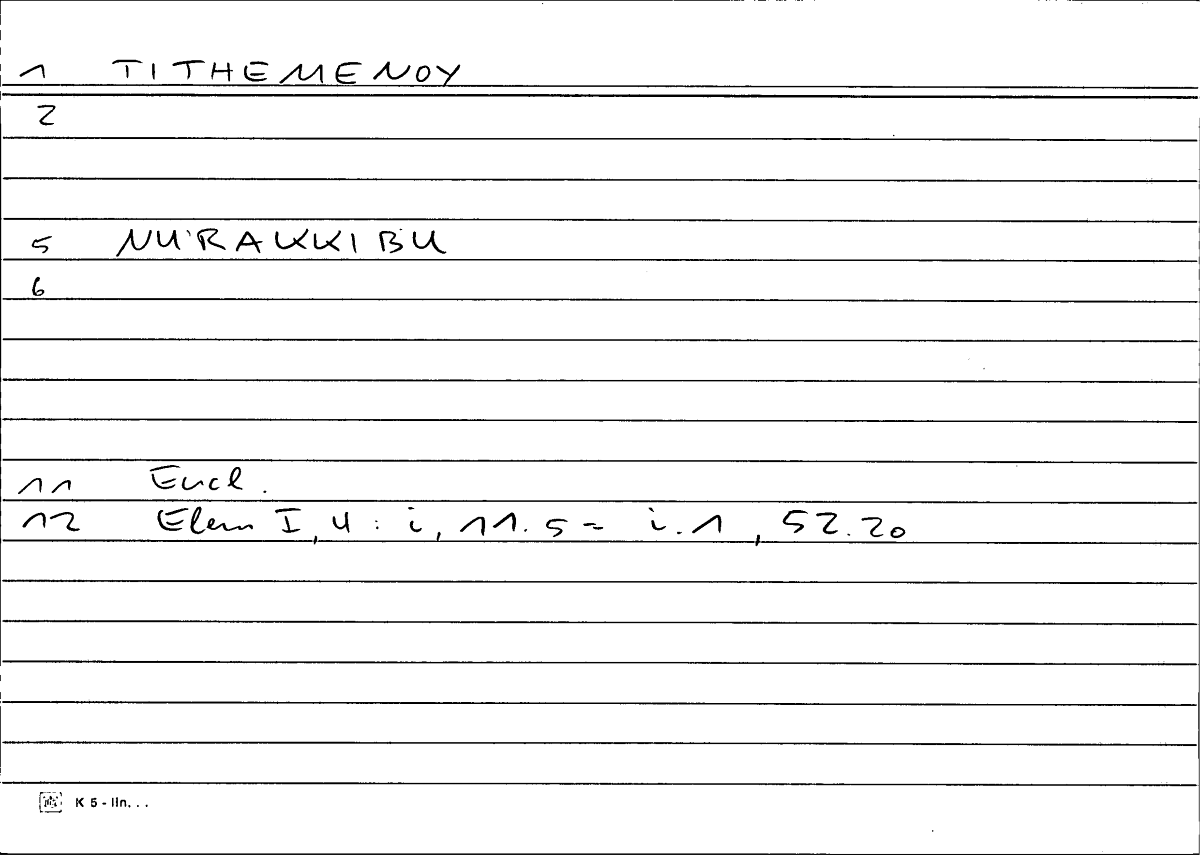 1 TITHEMENOY
2
5 NURAKKIBU
6
11 Eucl.
12 Elem I, 4 : i, 11.5 = i.1, 52.20
K 5 - lin. . .